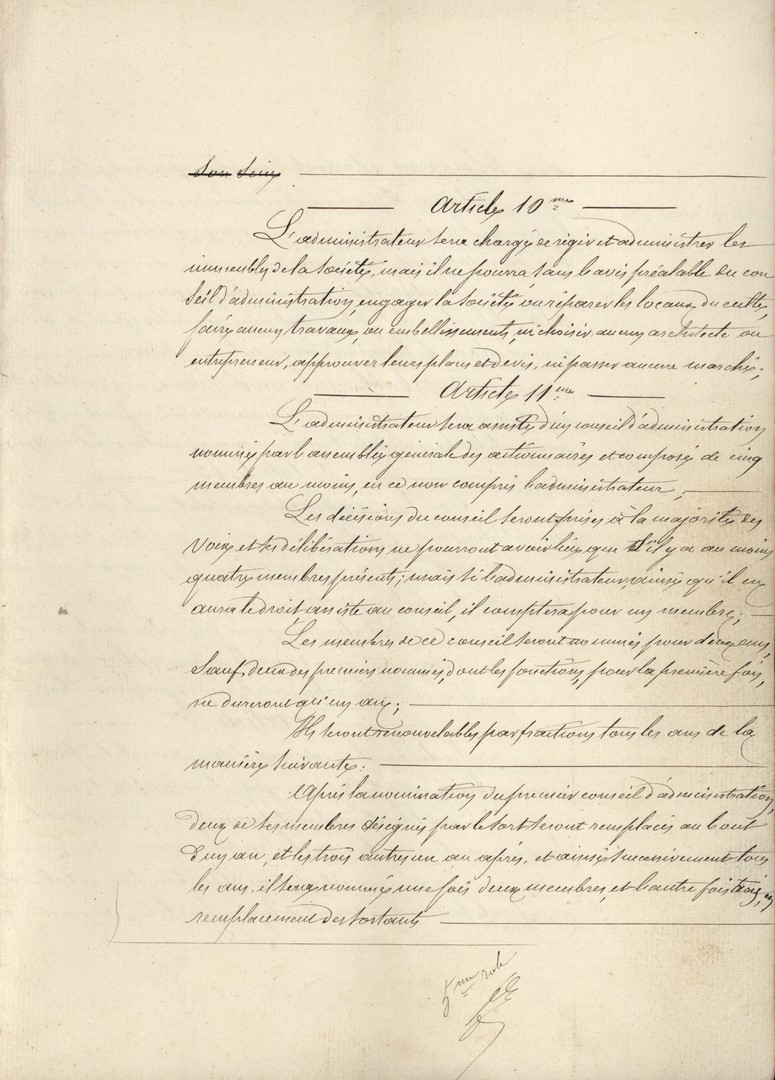 Son Sein
Article 10 me
L'administrateur sera chargé de régir et administrer les
immeubles de la société, mais il ne pourra, sans l'avis préalable du con
seil d'administration, engager la société ou réparer les locaux du culte,
faire aucuns travaux, ou embellissements, ni choisir aucun architecte ou
entrepreneur, approuver leurs plans et devis, ni passer aucune marché;
Article 11 me
L'administrateur sera assisté d'un conseil d'administration
nommé par l'assemblée générale des actionnaires et composé de cinq
membres au moins, en ce non compris l'administrateur;
Les décisions du conseil seront prises à la majorité des
voix et ses délibérations ne pourront avoir lieu que s'il y a au moins
quatre membres présents; mais si l'administrateur, ainsi qu'il en
aura le droit, assiste au conseil, il comptera pour un membre;
Les membres de ce conseil seront nommés pour deux ans,
sauf deux des premiers nommés, dont les fonctions, pour la première fois,
ne dureront qu'un an;
Ils seront renouvelables par fractions tous les ans de la
manière suivante:
Après la nomination du premier conseil d'administration,
deux de ses membres désignés par le sort seront remplacés au bout
d'un an, et les trois autres un an après, et ainsi successivement tous
les ans, il sera nommé une fois deux membres, et l'autre fois trois, en
remplacement des sortants
5me role